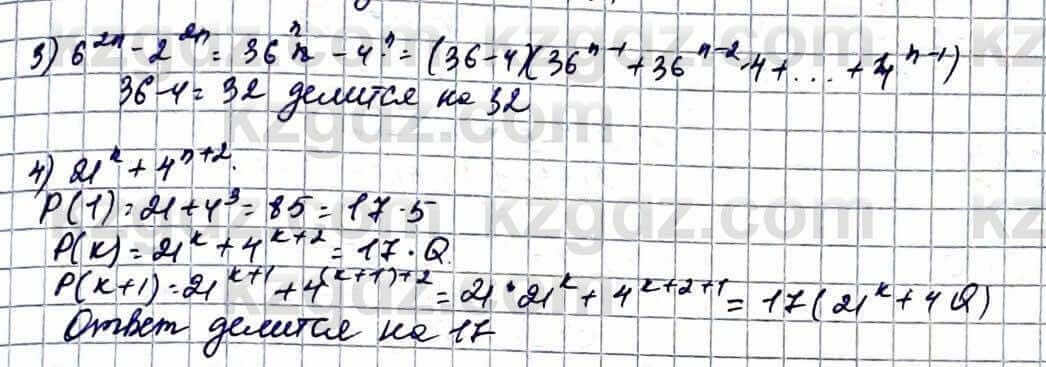 3) 6^{2n} - 2^{2n} = 36^n - 4^n = (36-4)(36^{n-1} + 36^{n-2}·4 + ... + 4^{n-1})
36-4 = 32 делится на 32
4) 21^n + 4^{n+2}.
P(1) = 21 + 4^3 = 85 = 17·5
P(k) = 21^k + 4^{k+2} = 17·Q.
P(k+1) = 21^{k+1} + 4^{(k+1)+2} = 21·21^k + 4^{k+2+1} = 17(21^k + 4Q)
Ответ делится на 17
kzgdz.com kzgdz.com
kzgdz.com kzgdz.com